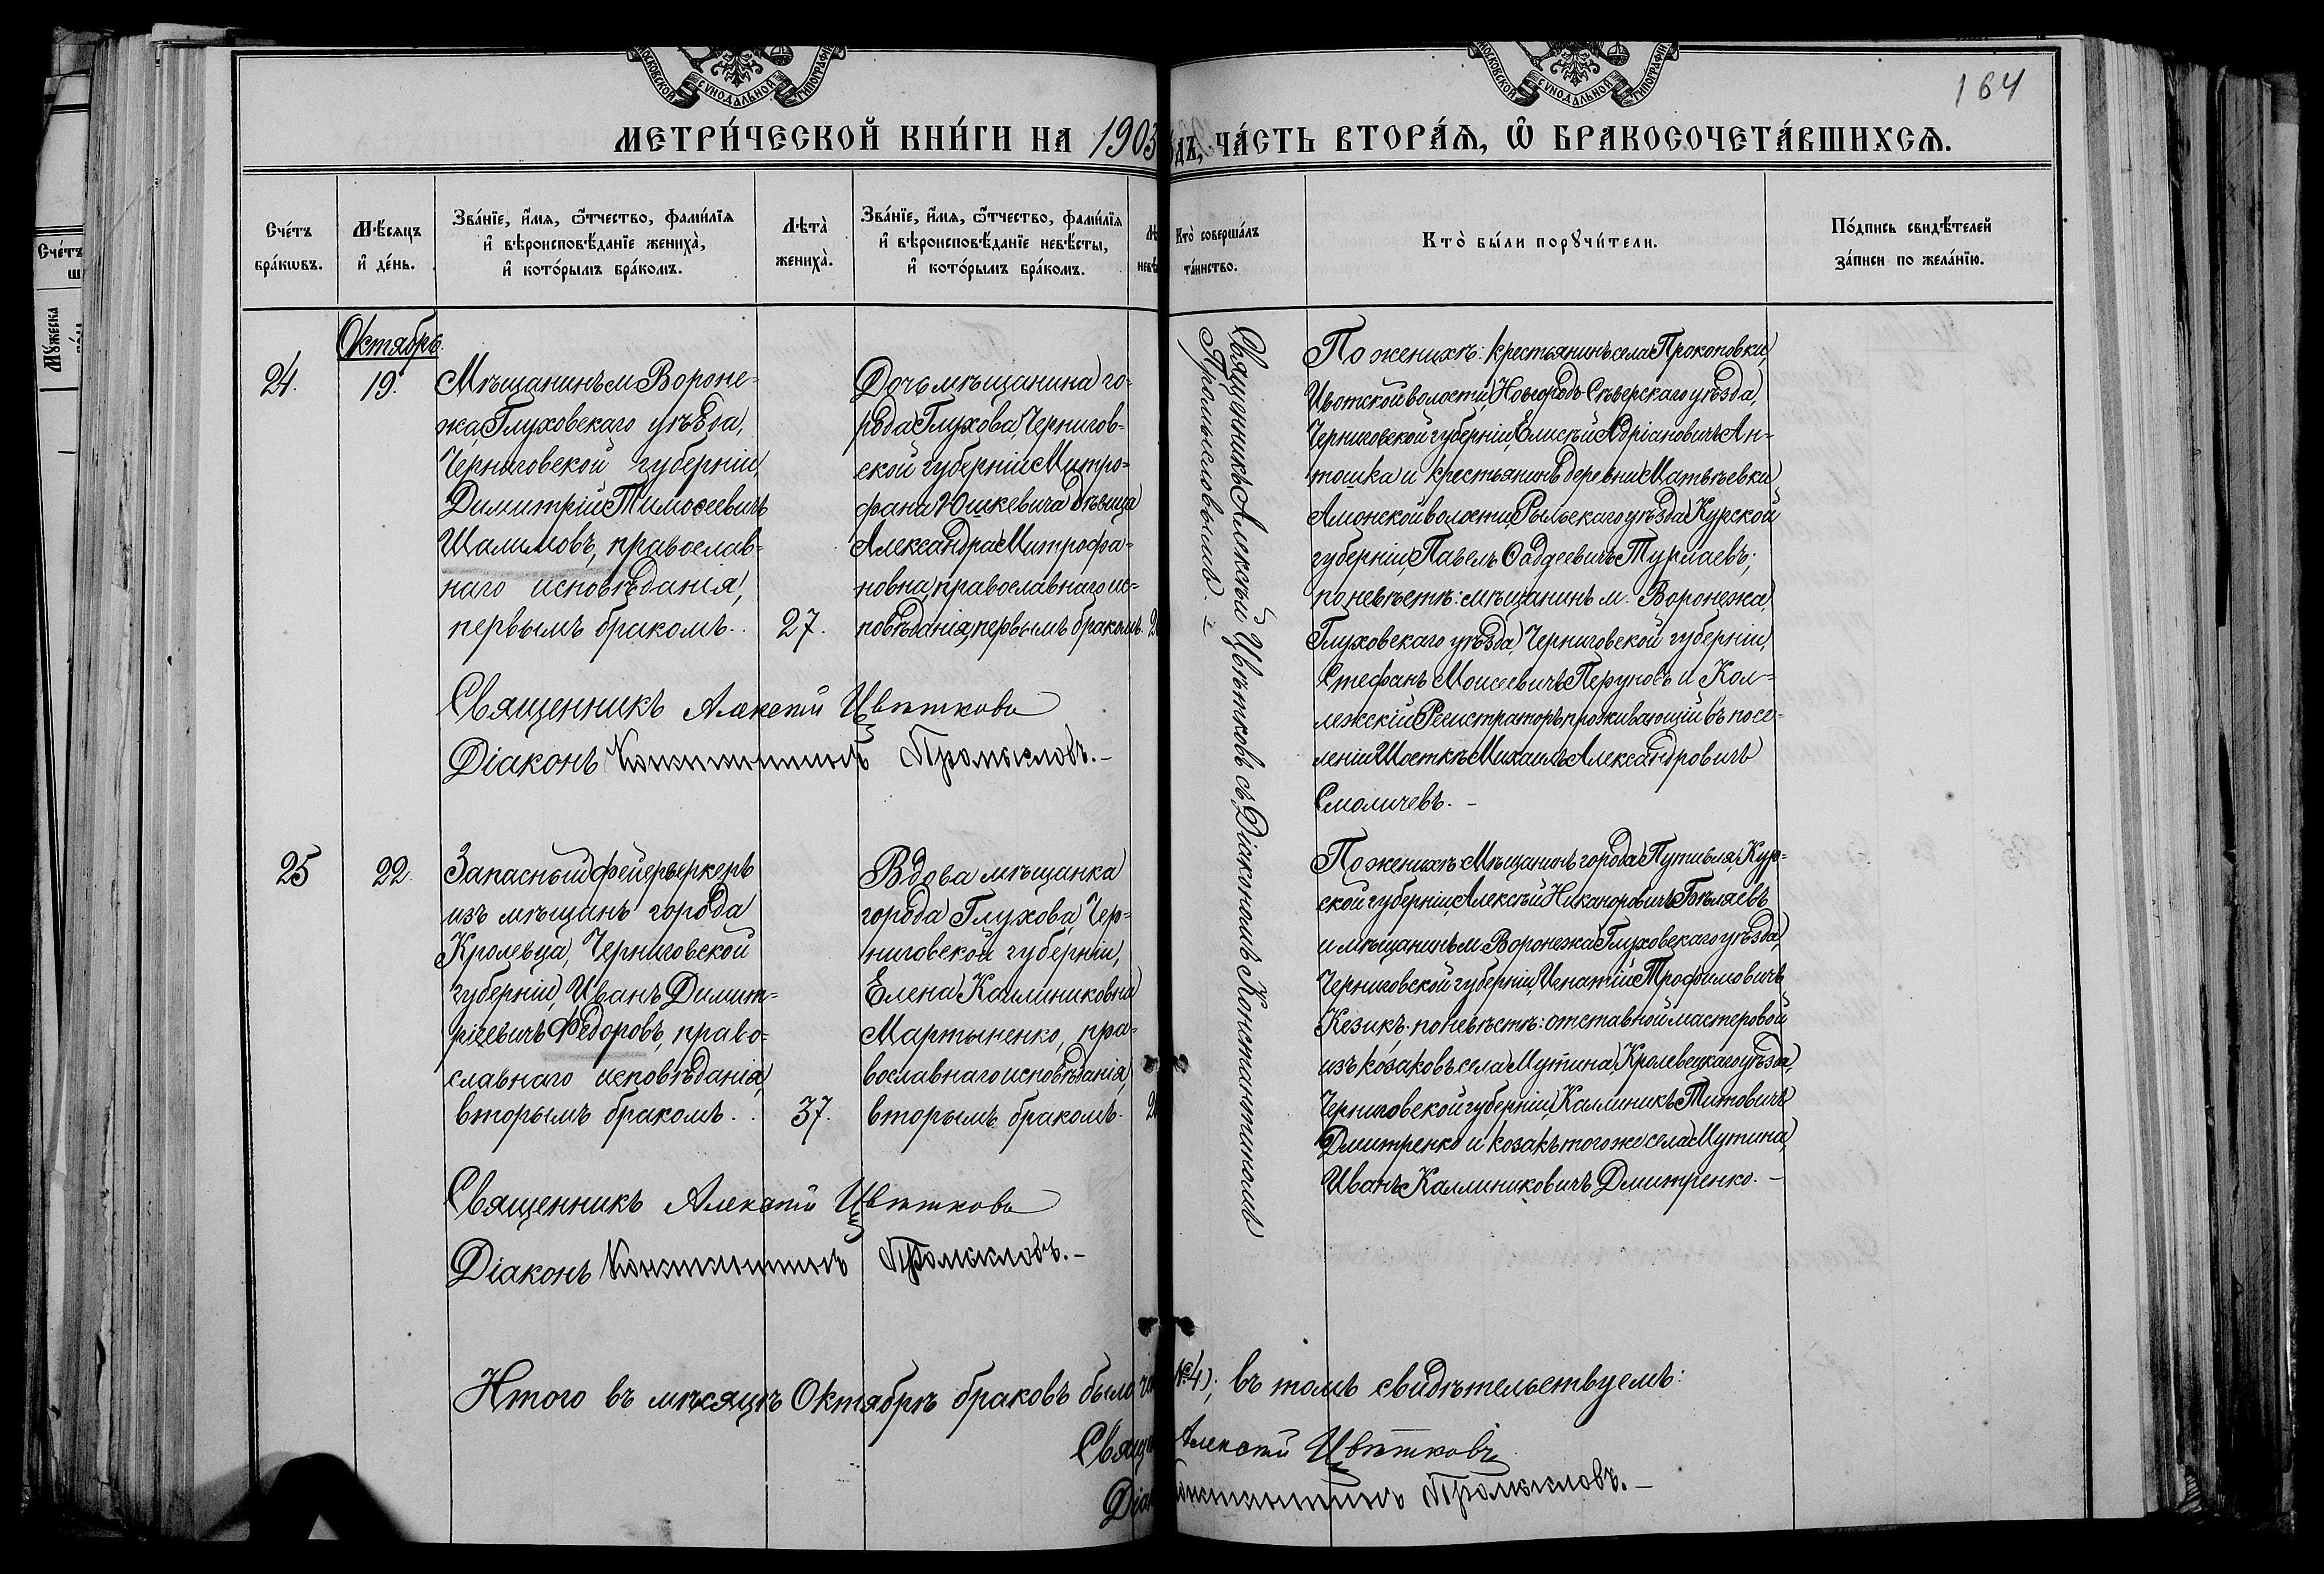 МОСКОВСКОЙ СѴНОДАЛЬНОЙ ТИПОГРАФІИ
МОСКОВСКОЙ СѴНОДАЛЬНОЙ ТИПОГРАФІИ
164
МЕТРИ́ЧЕСКОЙ КНИ́ГИ НА 1903
ДЪ, ЧА́СТЬ ВТОРА́Ѧ, Ѡ҆ БРАКОСОЧЕТА́ВШИХСѦ.
Сче́тъ
бра́кωвъ.
Мѣ́сяцъ
и҆ де́нь.
Зва́нїе, и҆́мя, ѻ҆́тчество, фами́лїя
и҆ вѣроисповѣ́данїе жениха̀,
и҆ кото́рымъ бра́комъ.
Лѣта̀
жениха̀.
Зва́нїе, и҆́мя, ѻ҆́тчество, фами́лїя
и҆ вѣроисповѣ́данїе невѣ́сты,
и҆ кото́рымъ бра́комъ.
Кто̀ соверша́лъ
та́инство.
Кто̀ бы́ли порꙋчи́тели.
По́дпись свидѣ́телей
за́писи по жела́нїю.
Сче́тъ
Мꙋ́жеска
Октябрь.
24.
19.
Мѣщанинъ м. Вороне-
жа Глуховскаго уѣзда,
Черниговской губерніи,
Димитрій Тимоѳеевичъ
Шалимовъ, православ-
наго исповѣданія,
первымъ бракомъ.
27.
Дочь мѣщанина го-
рода Глухова, Чернигов-
ской губерніи Митро-
фана Юшкевича дѣвица
Александра Митрофа-
новна, православнаго ис-
повѣданія, первымъ бракомъ.
Священникъ Алексѣй Цвѣтковъ съ Діакономъ Константиномъ
Промысловымъ.
По женихѣ: крестьянинъ села Прокоповки,
Ивотской волости, Новгородъ-Сѣверскаго уѣзда,
Черниговской губерніи, Елисѣй Адріановичъ Ан-
тошка и крестьянинъ деревни Матвѣевки,
Амонской волости Рыльскаго уѣзда Курской
губерніи, Павелъ Фаддеевичъ Турлаевъ;
по невѣстѣ: мѣщанинъ м. Воронежа,
Глуховскаго уѣзда, Черниговской губерніи,
Стефанъ Моисеевичъ Перуновъ и Кол-
лежскій Регистраторъ проживающій въ посе-
леніи Шосткѣ Михаилъ Александровичъ
Смоличевъ. –
Священникъ Алексѣй Цвѣтковъ
Діаконъ Константинъ Промысловъ. –
25
22.
Запасный фейерверкеръ
изъ мѣщанъ города
Кролевца, Черниговской
губерніи, Иванъ Димит-
ріевичъ Федоровъ, право-
славнаго исповѣданія,
вторымъ бракомъ.
37.
Вдова мѣщанка
города Глухова, Чер-
ниговской губерніи,
Елена Каллиниковна
Мартыненко, пра-
вославнаго исповѣданія,
вторымъ бракомъ.
По женихѣ: Мѣщанинъ города Путивля, Кур-
ской губерніи, Алексѣй Никаноровичъ Бѣляевъ
и мѣщанинъ м. Воронежа Глуховскаго уѣзда,
Черниговской губерніи, Игнатій Трофимовичъ
Кезикъ. по невѣстѣ: отставной мастеровой
изъ козаковъ села Мутина, Кролевецкаго уѣзда,
Черниговской губерніи, Каллиникъ Титовичъ
Дмитренко и козакъ того же села Мутина,
Иванъ Каллиниковичъ Дмитренко. –
Священникъ Алексѣй Цвѣтковъ
Діаконъ Константинъ Промысловъ. –
Итого въ мѣсяцѣ Октябрѣ браковъ было
№4); въ томъ свидѣтельствуемъ:
Алексѣй Цвѣтковъ
Промысловъ. –